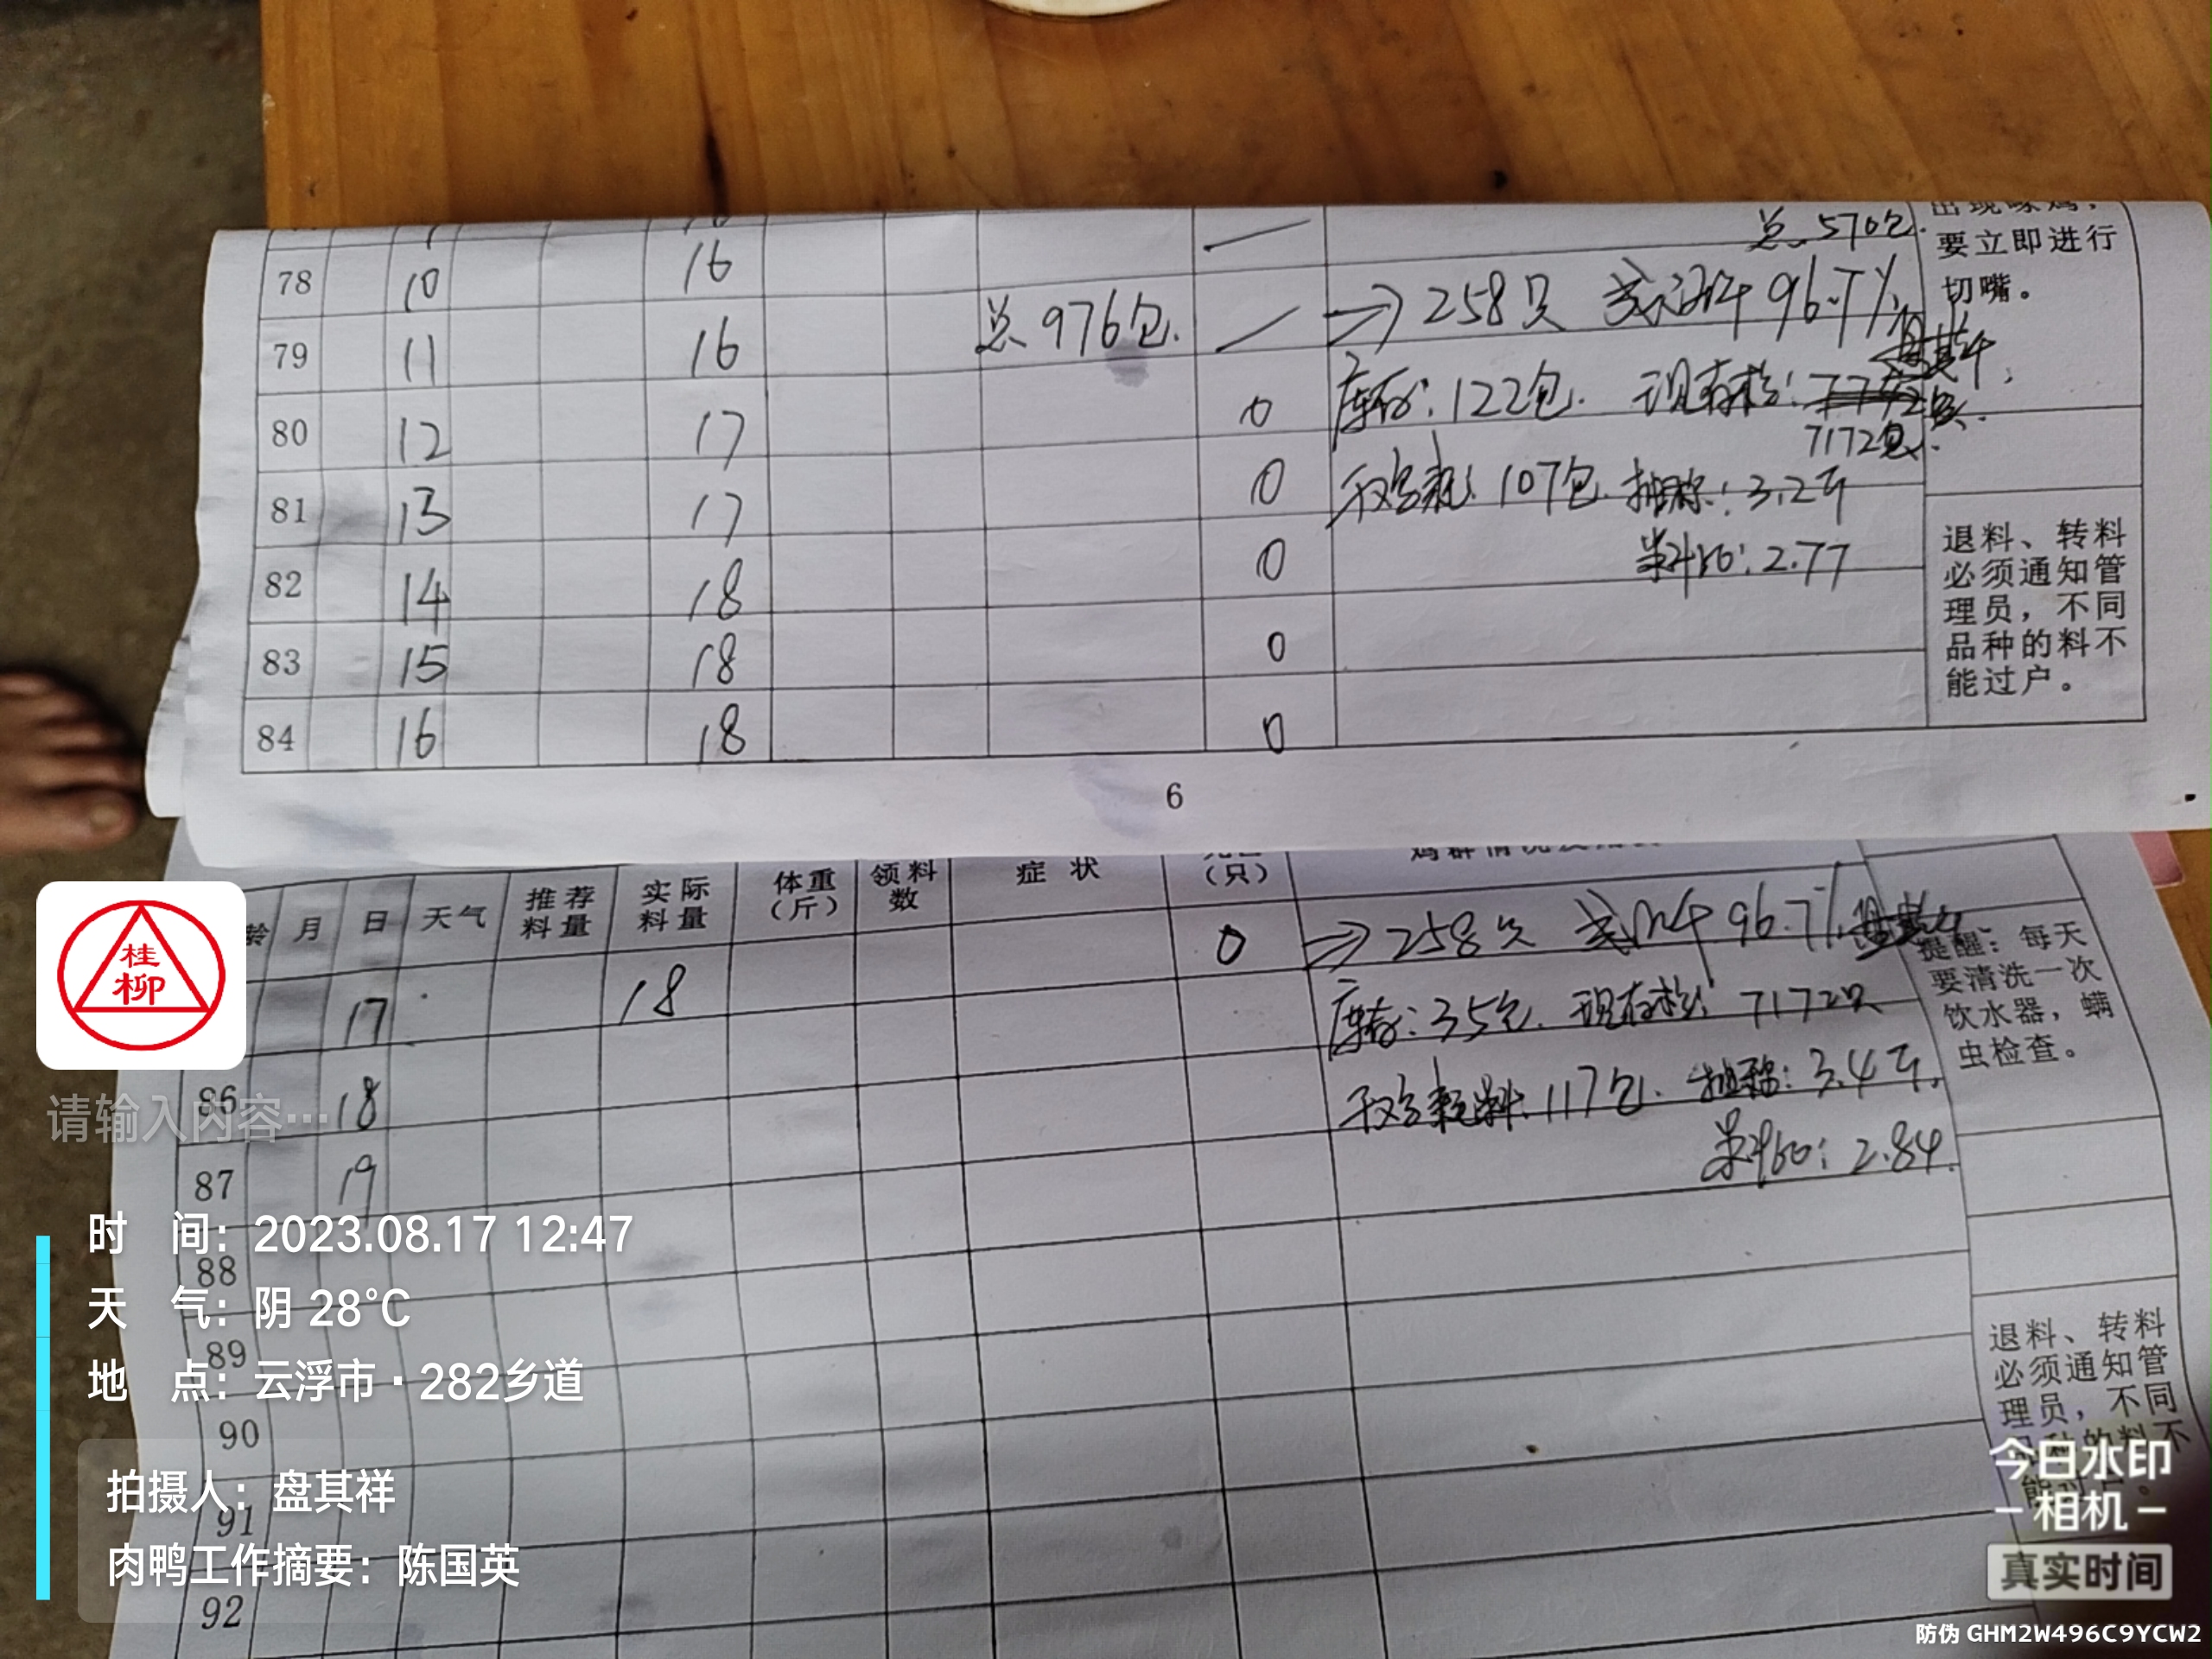 总570包.
出现啄鸡,
要立即进行
切嘴。
78 10 16
79 11 16 总976包. → 258只 成活率96.7%
80 12 17 0 库存:122包. 现存栏:
7172
81 13 17 0 千鸡耗:107包. 抽称:3.2斤
82 14 18 0 料比:2.77
83 15 18 0
84 16 18 0
退料、转料
必须通知管
理员,不同
品种的料不
能过户。
6
龄 月 日 天气 推荐料量 实际料量 体重(斤) 领料数 症状 (只)
17 18 0 → 258只 成活率96.7%
库存:35包. 现存栏:7172只
86 18 千鸡耗料:117包. 抽称:3.4斤.
87 19 料比:2.84.
88
89
90
91
92
提醒:每天
要清洗一次
饮水器,螨
虫检查。
退料、转料
必须通知管
理员,不同
品种的料不
桂
柳
请输入内容…
时 间:2023.08.17 12:47
天 气:阴 28°C
地 点:云浮市·282乡道
拍摄人:盘其祥
肉鸭工作摘要:陈国英
今日水印
相机
真实时间
防伪 GHM2W496C9YCW2